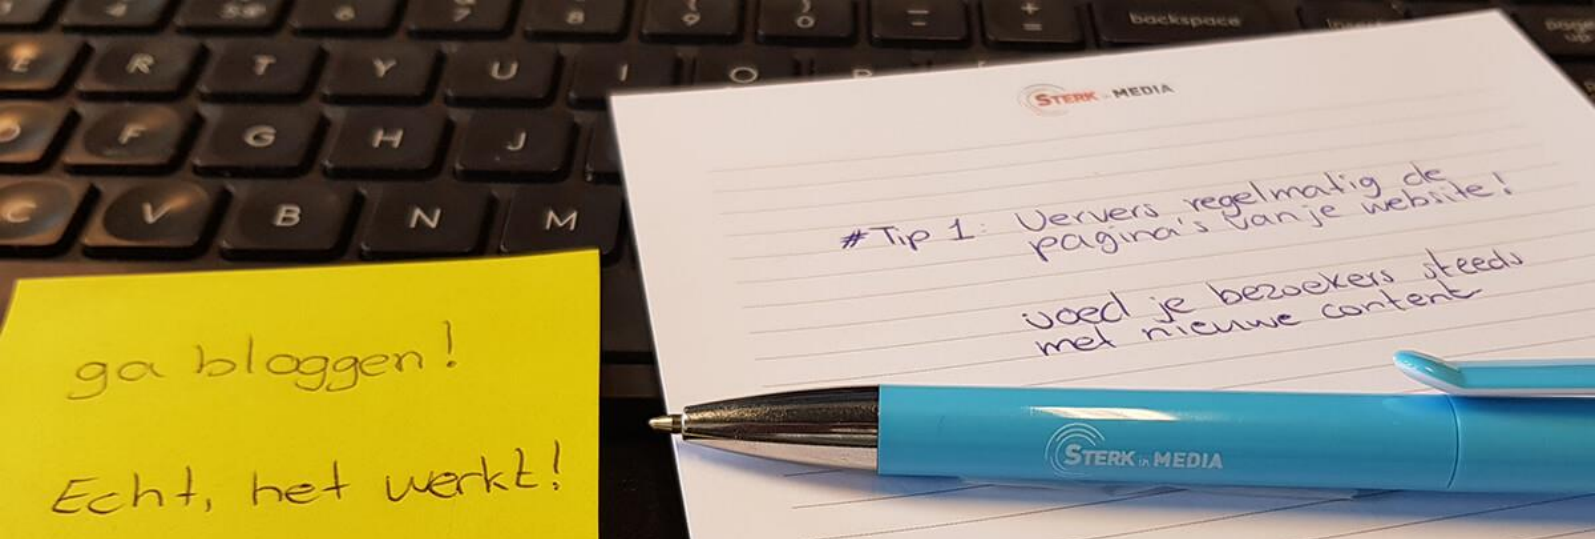 5 6 7 8 9 0 - + =
backspace
E R T Y U I O P
F G H J
C V B N M
STERK in MEDIA
#Tip 1: Ververs regelmatig de
pagina's van je website!
voed je bezoekers steeds
met nieuwe content
ga bloggen!
Echt, het werkt!
STERK in MEDIA